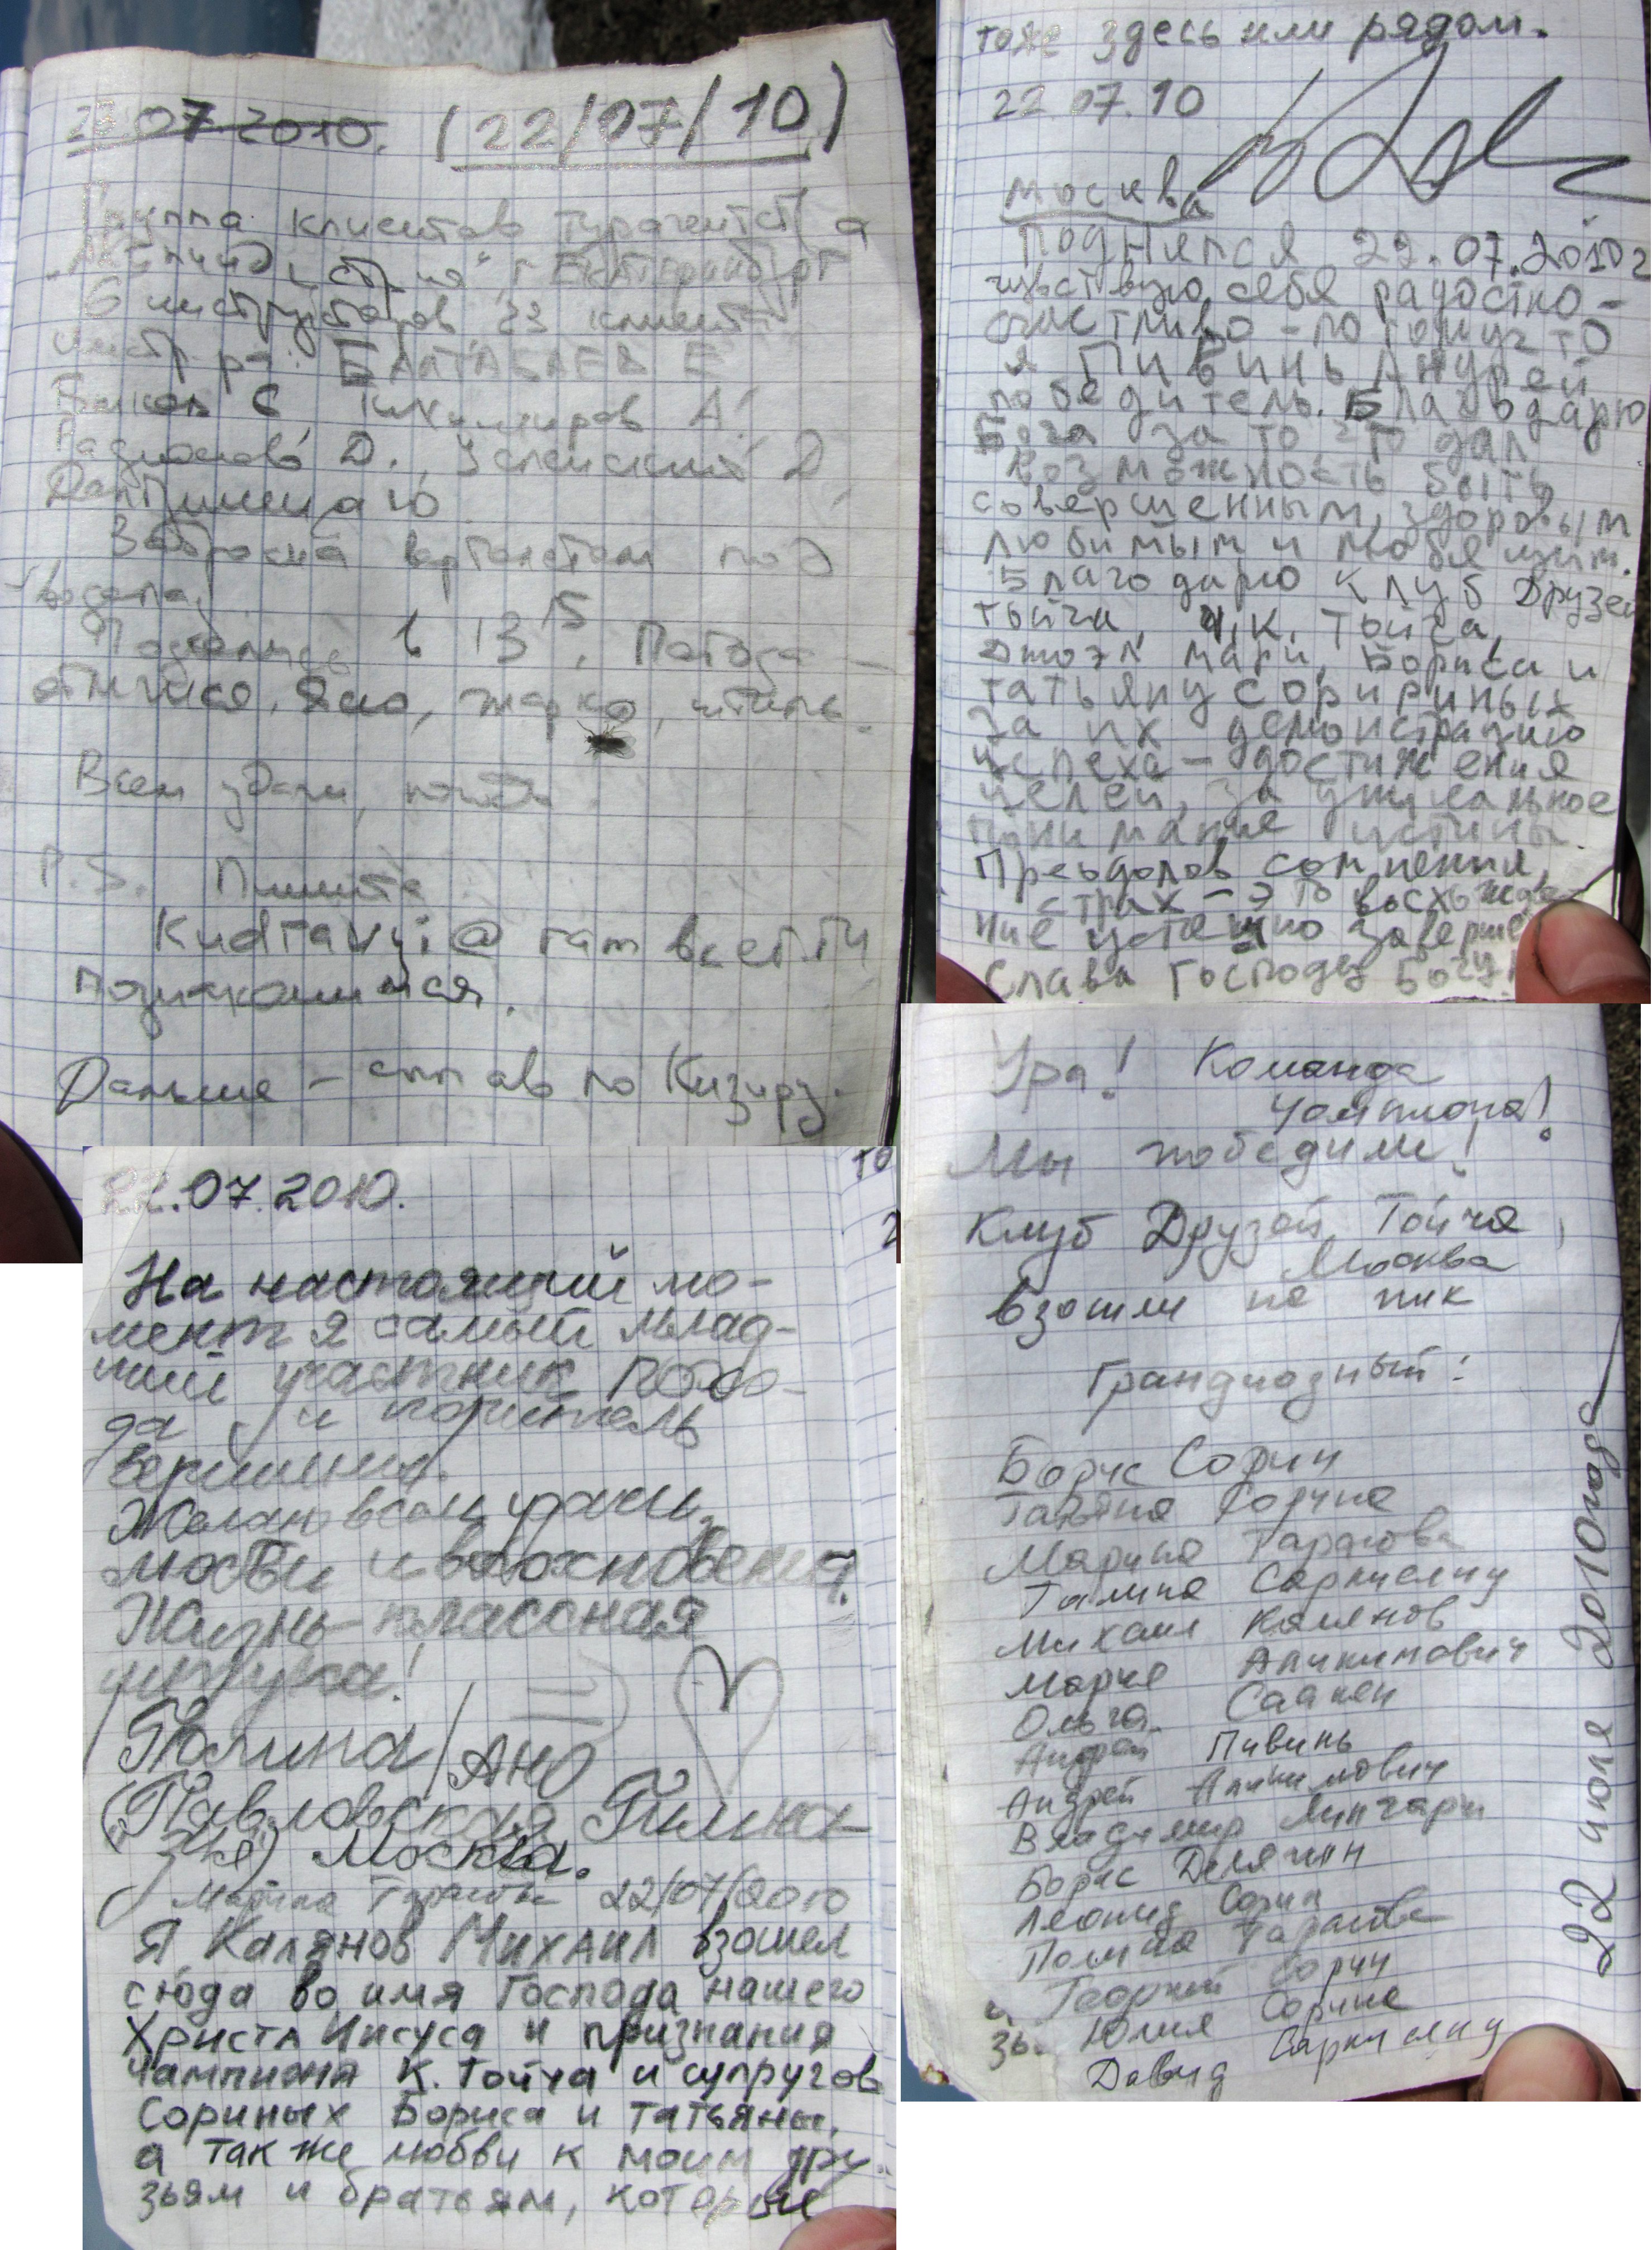 07.2010. (22/07/10)
Группа клиентов турагентства
г. Екатеринбург
6 инструкторов 23 клиента
инстр-ра: БАЛТАБАЕВ Е
С. А.
Д., Успенский Д,
Ю
Заброска вертолетом под
водопад.
Поднялись в 13 15. Погода —
отличная. Ясно, жарко, штиль.
Всем удачи,
P.S. Пишите
Kudravyi@ там в сети
поднявшимся.
Дальше – сплав по Кизиру.
22.07.2010.
На настоящий мо-
мент я самый млад-
ший участник похо-
да и покоритель
вершины.
Желаю всем удачи,
любви и вдохновения.
Жизнь-классная
штука!
/Полина/
(Павловская Полина
) Москва.
Марина Тарасова 22/07/2010
Я Калянов Михаил взошел
сюда во имя Господа нашего
Христа Иисуса и признания
чампиона К. Тойча и супругов
Сориных Бориса и Татьяны,
а так же любви к моим дру
зьям и братьям, которые
тоже здесь или рядом.
22.07.10
Москва
Поднялся 22.07.2010г
чувствую себя радостно-
счастливо - потому что
я Пивинь Андрей
победитель. Благодарю
Бога за то что дал
возможность быть
совершенным, здоровым
любимым и любящим.
Благодарю клуб Друзей
Тойча, Ч.К. Тойча,
Джоэл Мари, Бориса и
Татьяну Сориных
за их демонстрацию
успеха - достижения
целей, за уникальное
понимание истины
Преодолов сомнения,
страх - это восхожде-
ние успешно заверше
Слава Господу Богу!
Ура! Команда
Чампиона!
Мы победили!
Клуб Друзей Тойча,
Москва
взошли на пик
Грандиозный!
Борис Сорин
Татьяна Сорина
Марина Тарасова
Галина Саркисянц
Михаил Калянов
Мария Аликимович
Ольга Саакян
Андрей Пивинь
Андрей Аликимович
Владимир Мингари
Борис Делягин
Леонид Сорин
Полина Тарасова
Георгий Сорин
Юлия Сорина
Давид Саркисянц
22 июля 2010 года